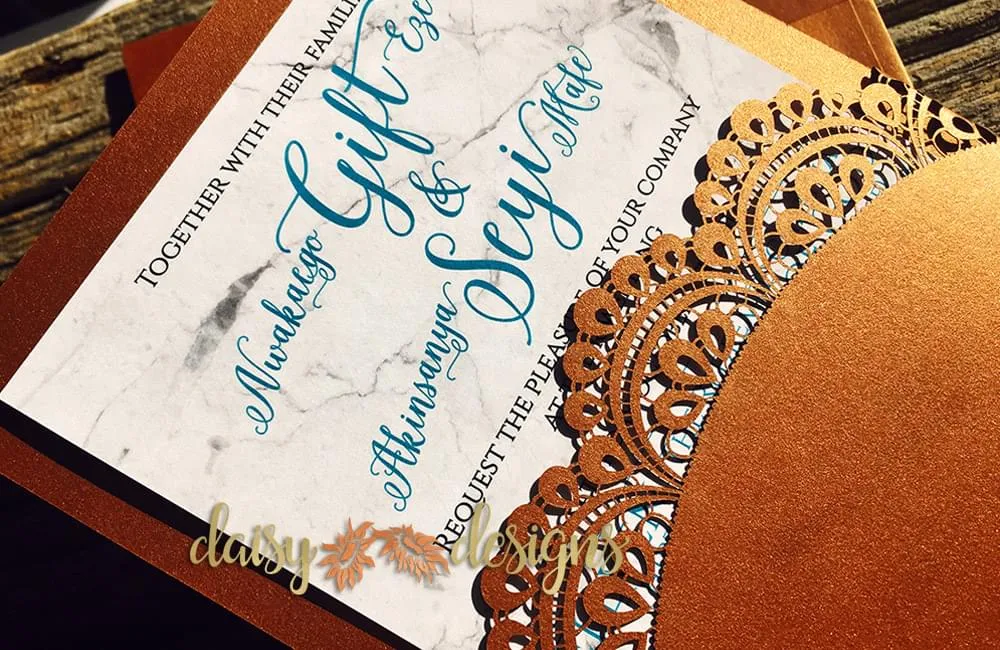 TOGETHER WITH THEIR
Nwakaego Gift Eze
&
Akinsanya Seyi Mafe
REQUEST THE OF YOUR COMPANY
daisy designs